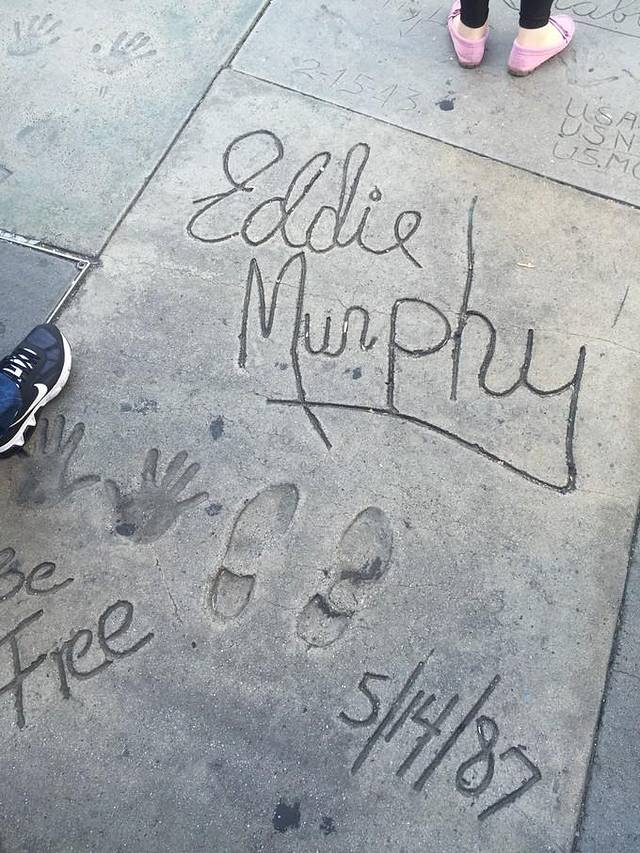 2-15-43
USA
USN
US.MC
Eddie
Murphy
Be
Free
5/14/87